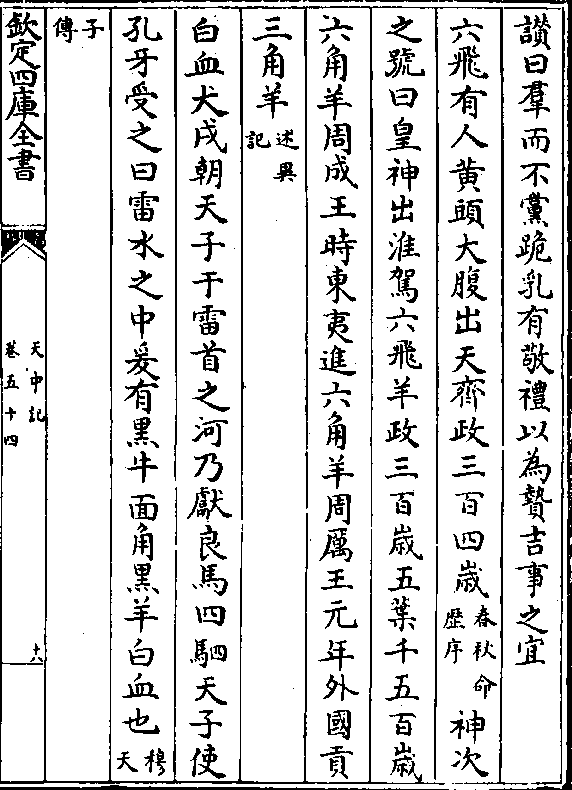 讃曰羣而不黨跪乳有敬禮以為贄吉事之宜
六飛有人黄頭大腹出天齊政三百四歲春秋命歴序神次
之號曰皇神出淮駕六飛羊政三百歲五葉千五百歲
六角羊周成王時東夷進六角羊周厲王元年外國貢
三角羊述異記
白血犬戌朝天子于雷首之河乃獻良馬四駟天子使
孔牙受之曰雷水之中爰有黒牛面角黒羊白血也穆天
子傳
欽定四庫全書
天中記
卷五十四
十八